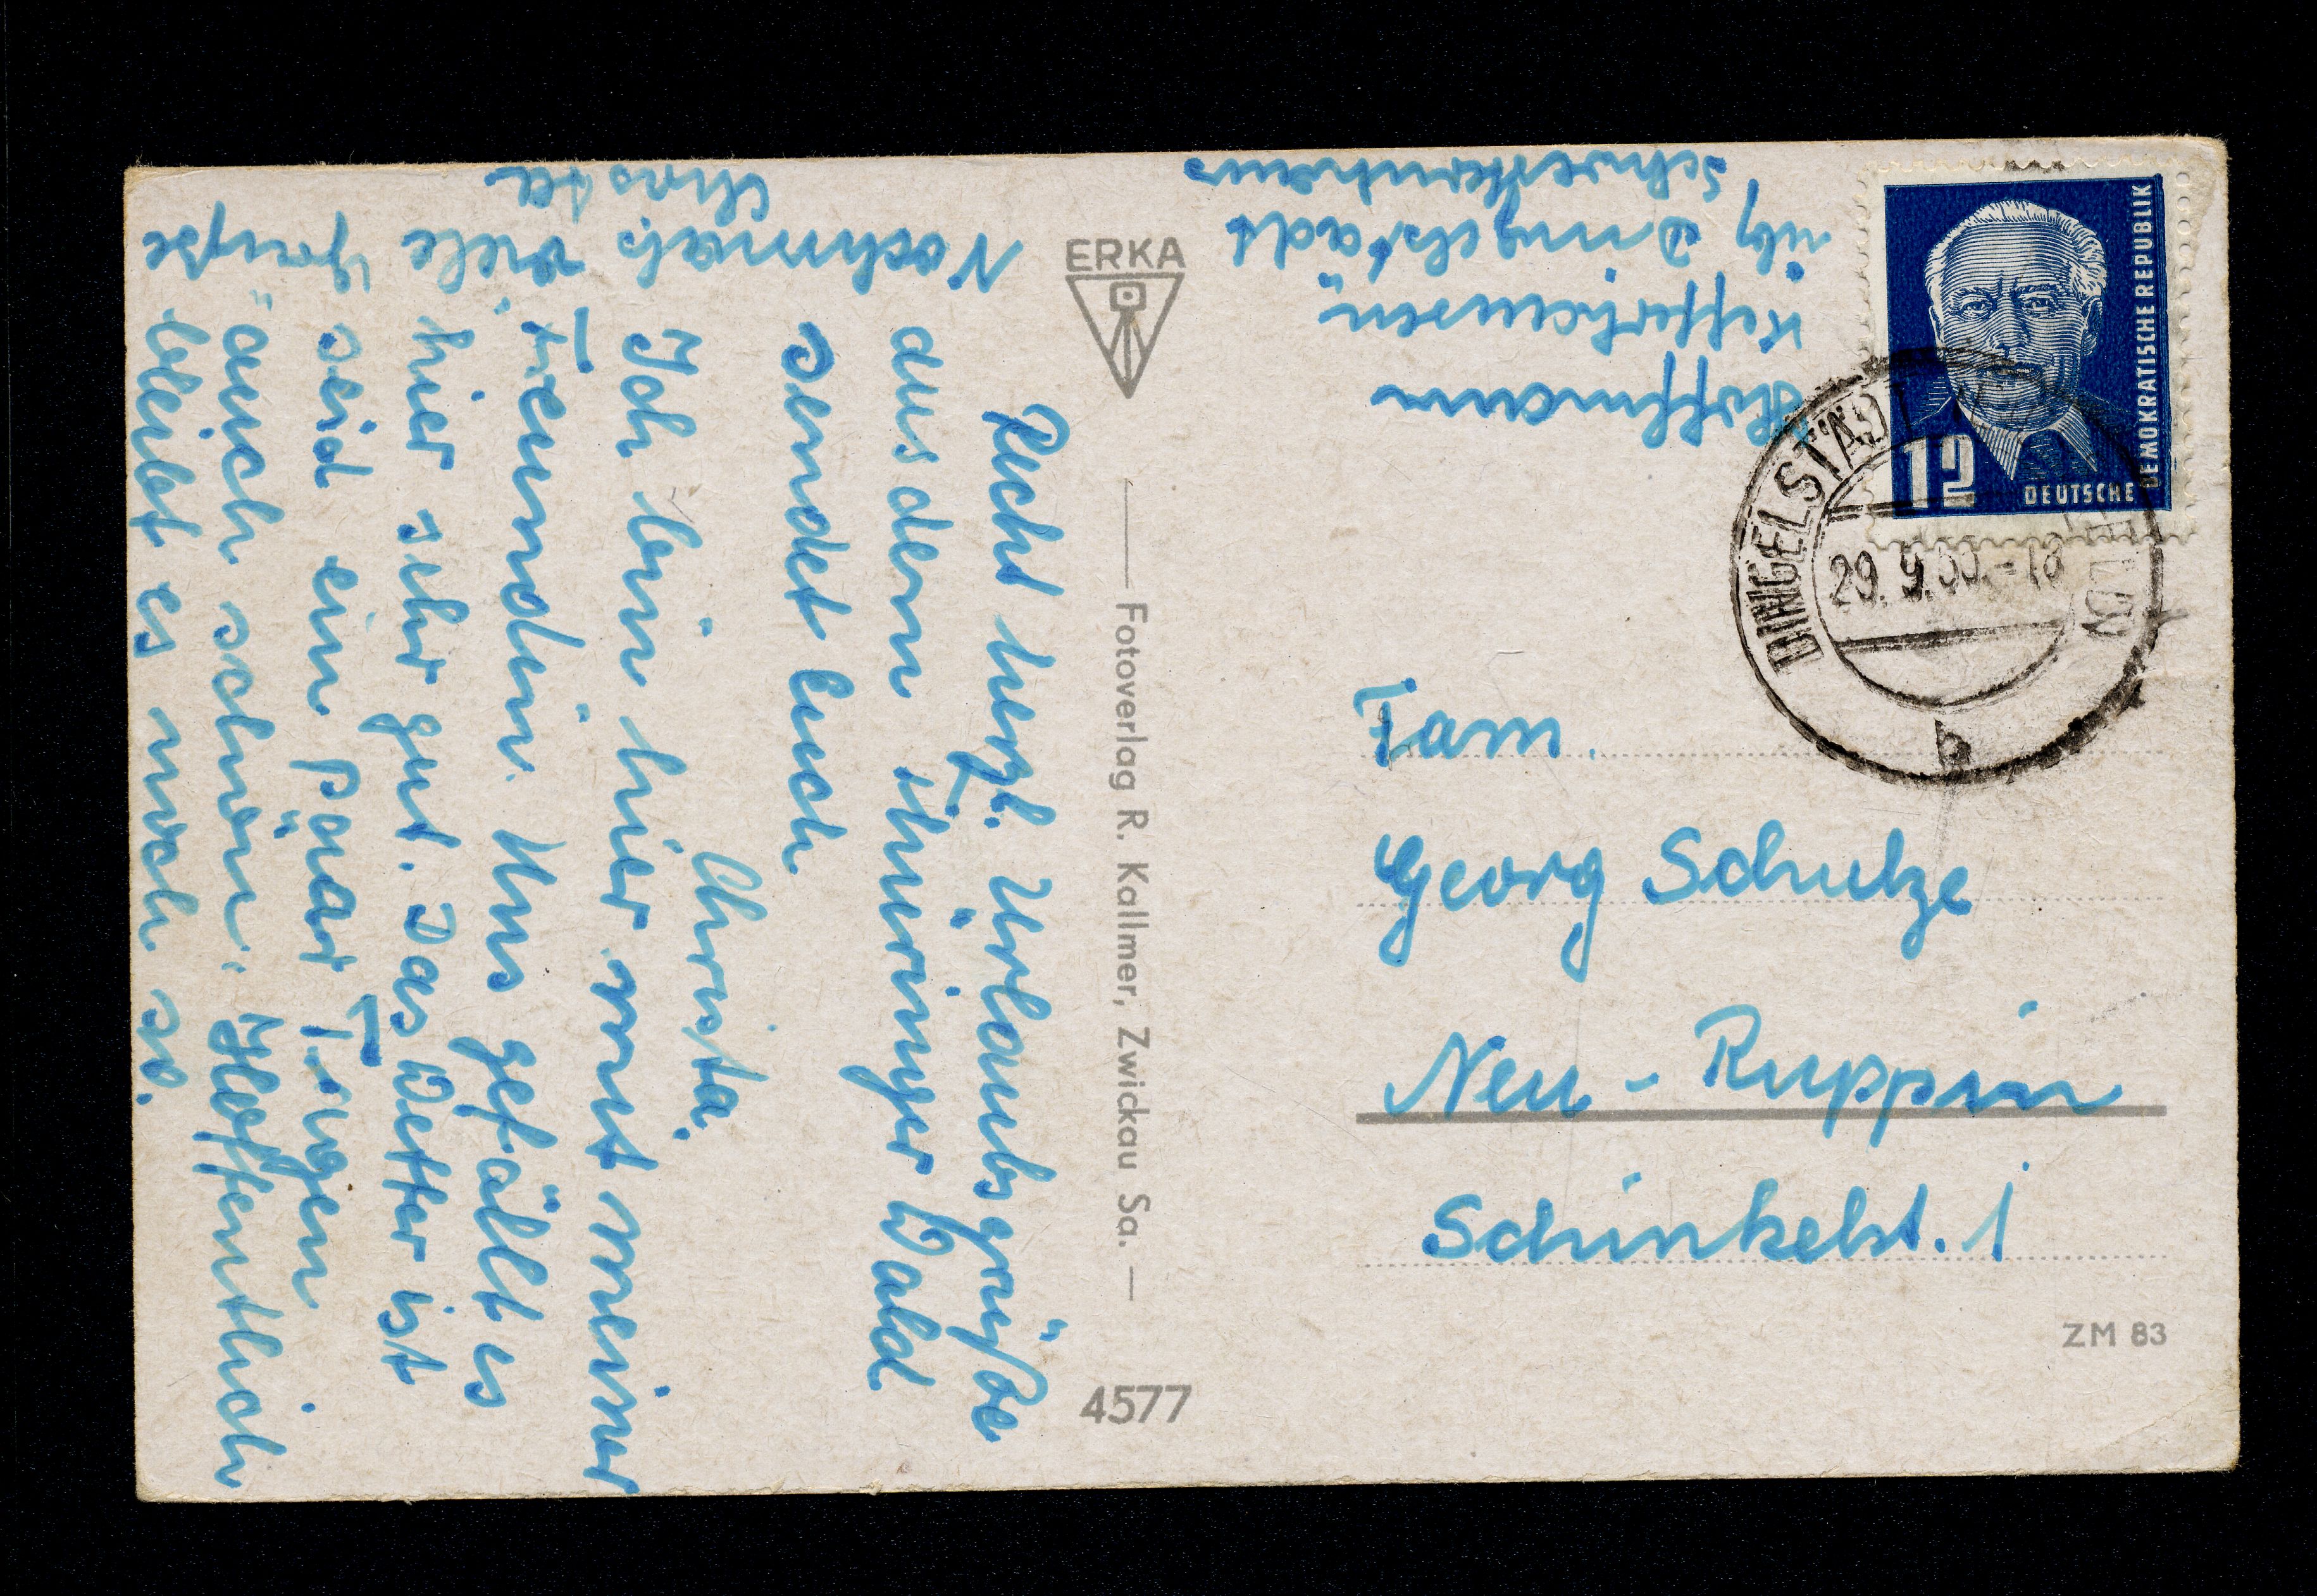 Recht herzl. Urlaubsgrüße
aus dem Thüringer Wald
sendet Euch
Christa.
Ich bin hier mit meiner
Freundin. Uns gefällt es
hier sehr gut. Das Wetter ist
seid ein paar Tagen
auch schön. Hoffentlich
bleibt es noch so.
Nochmals viele Grüße
Christa
ERKA
Fotoverlag R. Kallmer, Zwickau Sa.
4577
Hoffmann
Kefferhausen
üb. Dingelstädt
Schwesternhaus
DEUTSCHE
DEMOKRATISCHE REPUBLIK
12
DINGELSTÄDT
29. 9.
b
Fam.
Georg Schulze
Neu-Ruppin
Schinkelst. 1
ZM 83